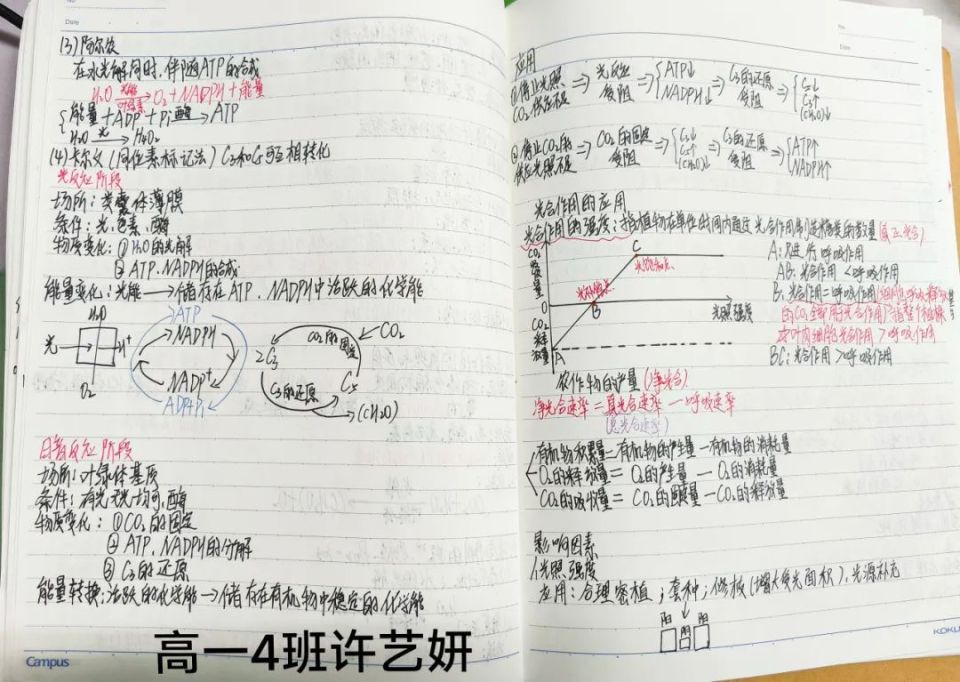 (3)阿尔农
在水光解同时,伴随ATP的合成
H₂O 光能 叶绿素 → O₂+NADPH+能量
能量+ADP+Pi 酶 → ATP
(4)卡尔文(同位素标记法)C₃和C₅可互相转化
光反应阶段
场所:类囊体薄膜
条件:光,色素,酶
物质变化:①H₂O的光解
②ATP.NADPH的合成
能量变化:光能→储存在ATP、NADPH中活跃的化学能
H₂O
光
H⁺
O₂
ATP
NADPH
NADP⁺
ADP+Pi
CO₂的固定
CO₂
2C₃
C₃的还原
C₅
(CH₂O)
暗反应阶段
场所:叶绿体基质
条件:有光无光均可,酶
物质变化:①CO₂的固定
②ATP.NADPH的分解
③C₃的还原
能量转换:活跃的化学能→储存在有机物中稳定的化学能
高一4班许艺妍
Campus
Date
应用
①停止光照、 ⇒ 光反应 ⇒ ATP↓ ⇒ C₃的还原 ⇒ C₅↓
CO₂供应不足 受阻 NADPH↓ 受阻 C₃↑
(CH₂O)↓
②停止CO₂的 ⇒ CO₂的固定 ⇒ C₃↓ ⇒ C₃的还原 ⇒ ATP↑
供应光照不足 受阻 C₅↑ 受阻 NADPH↑
(CH₂O)↓
光合作用的应用
光合作用的强度:指植物在单位时间内通过光合作用制造糖类的数量(真正光合)
CO₂吸收量
C
光饱和点
光补偿点
B
O
光照强度
CO₂释放量
A
A:只进行呼吸作用
AB:光合作用<呼吸作用
B:光合作用=呼吸作用
的CO₂全部用于光合作用)指整个植株
叶肉细胞光合作用>呼吸作用
BC:光合作用>呼吸作用
农作物的产量(净光合)
净光合速率=真光合速率-呼吸速率
(总光合速率)
有机物积累量=有机物的产生量-有机物的消耗量
O₂的释放量=O₂的产生量-O₂的消耗量
CO₂的吸收量=CO₂的固定量-CO₂的释放量
影响因素
1光照强度
应用:合理密植;套种;修枝(增大受光面积),光源补充
阳 阴 阳
KOKU